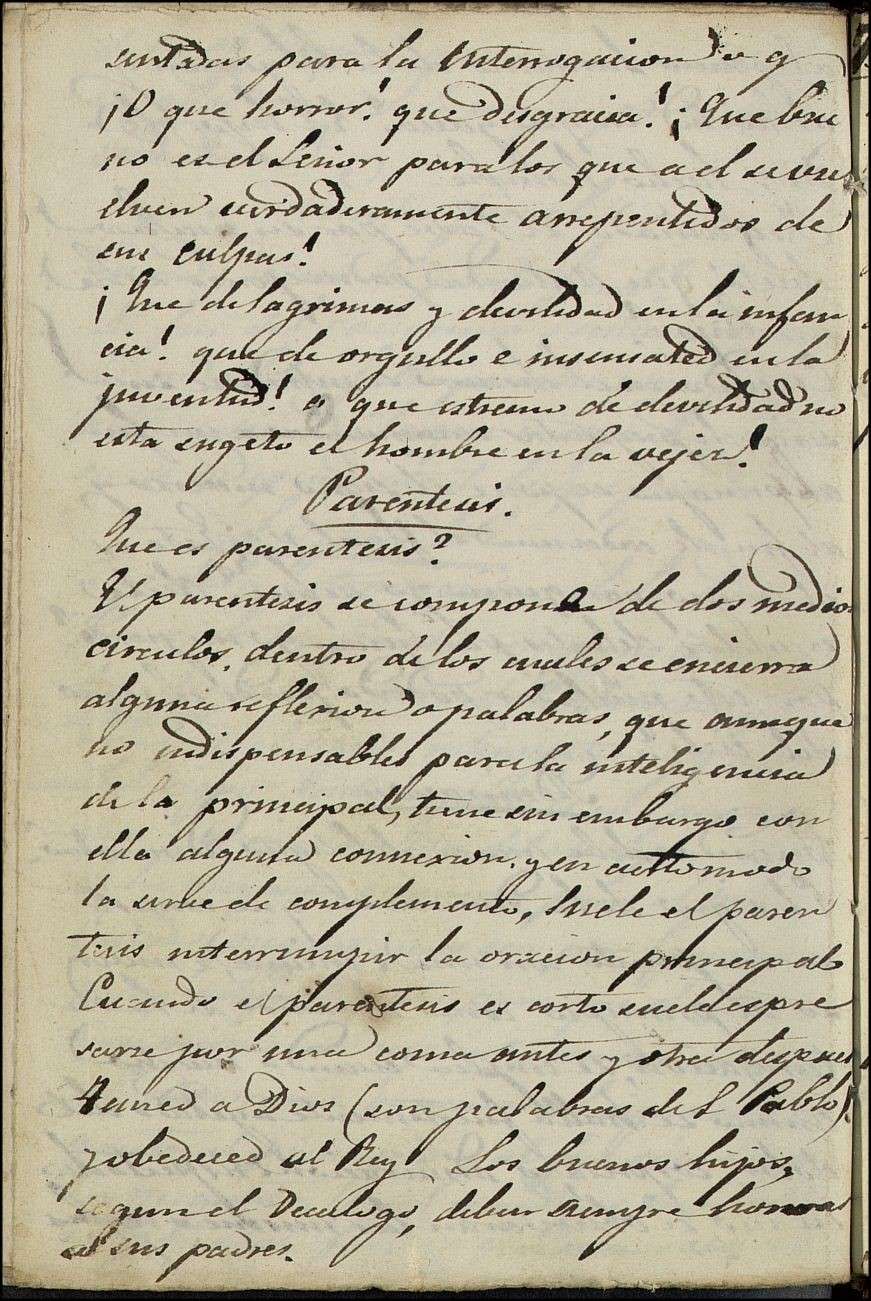 sentadas para la interrogacion v g
¡O que horror! que disgracia! ¡Que bue
no es el Señor para los que a el se vu
elven verdaderamente arrepentidos de
sus culpas!
¡Que de lagrimas y devilidad en la infan
cia! que de orgullo e insensated en la
juventud! a que estremo de devilidad no
esta sugeto el hombre en la vejez!
Parentesis.
Que es parentesis?
El parentesis se compone de dos medios
circulos, dentro de los cuales se encierra
alguna reflexion o palabras, que aunque
no indispensables para la inteligencia
de la principal, tiene sin embargo con
ella alguna connexion. y en cierto modo
la sirve de complemento, suele el paren
tesis interrumpir la oracion principal
Cuando el parentesis es corto suele espre
sarse por una coma antes y otra despues
a Dios (son palabras de S Pablo)
y obedeced al Rey Los buenos hijos,
segun el Decalogo, deben siempre honrar
a sus padres.